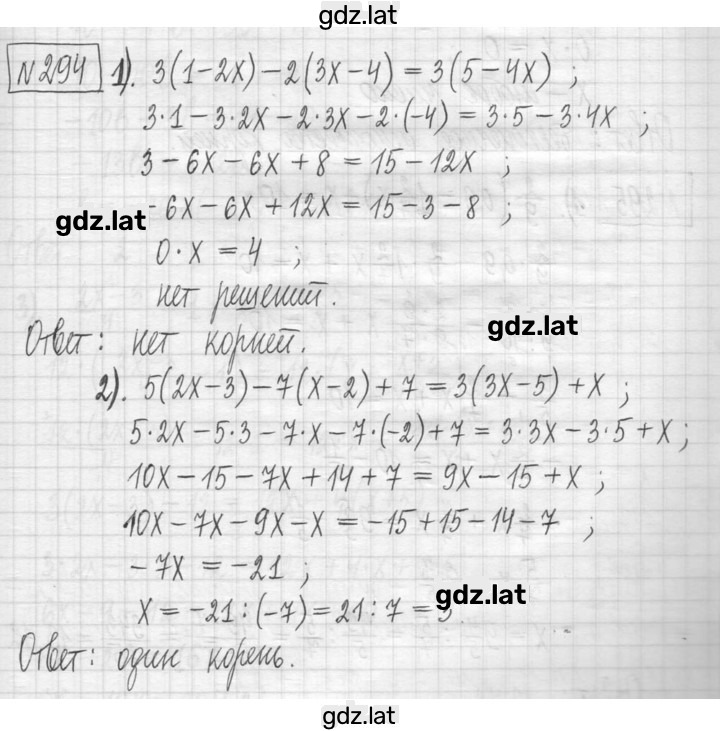 gdz.lat
№294 1). 3(1-2x)-2(3x-4)=3(5-4x) ;
3·1-3·2x-2·3x-2·(-4)=3·5-3·4x ;
3-6x-6x+8=15-12x ;
-6x-6x+12x=15-3-8 ;
gdz.lat
0·x=4 ;
нет решений.
Ответ: нет корней.
gdz.lat
2). 5(2x-3)-7(x-2)+7=3(3x-5)+x ;
5·2x-5·3-7·x-7·(-2)+7=3·3x-3·5+x ;
10x-15-7x+14+7=9x-15+x ;
10x-7x-9x-x=-15+15-14-7 ;
-7x=-21 ;
gdz.lat
x=-21:(-7)=21:7=3
Ответ: один корень.
gdz.lat